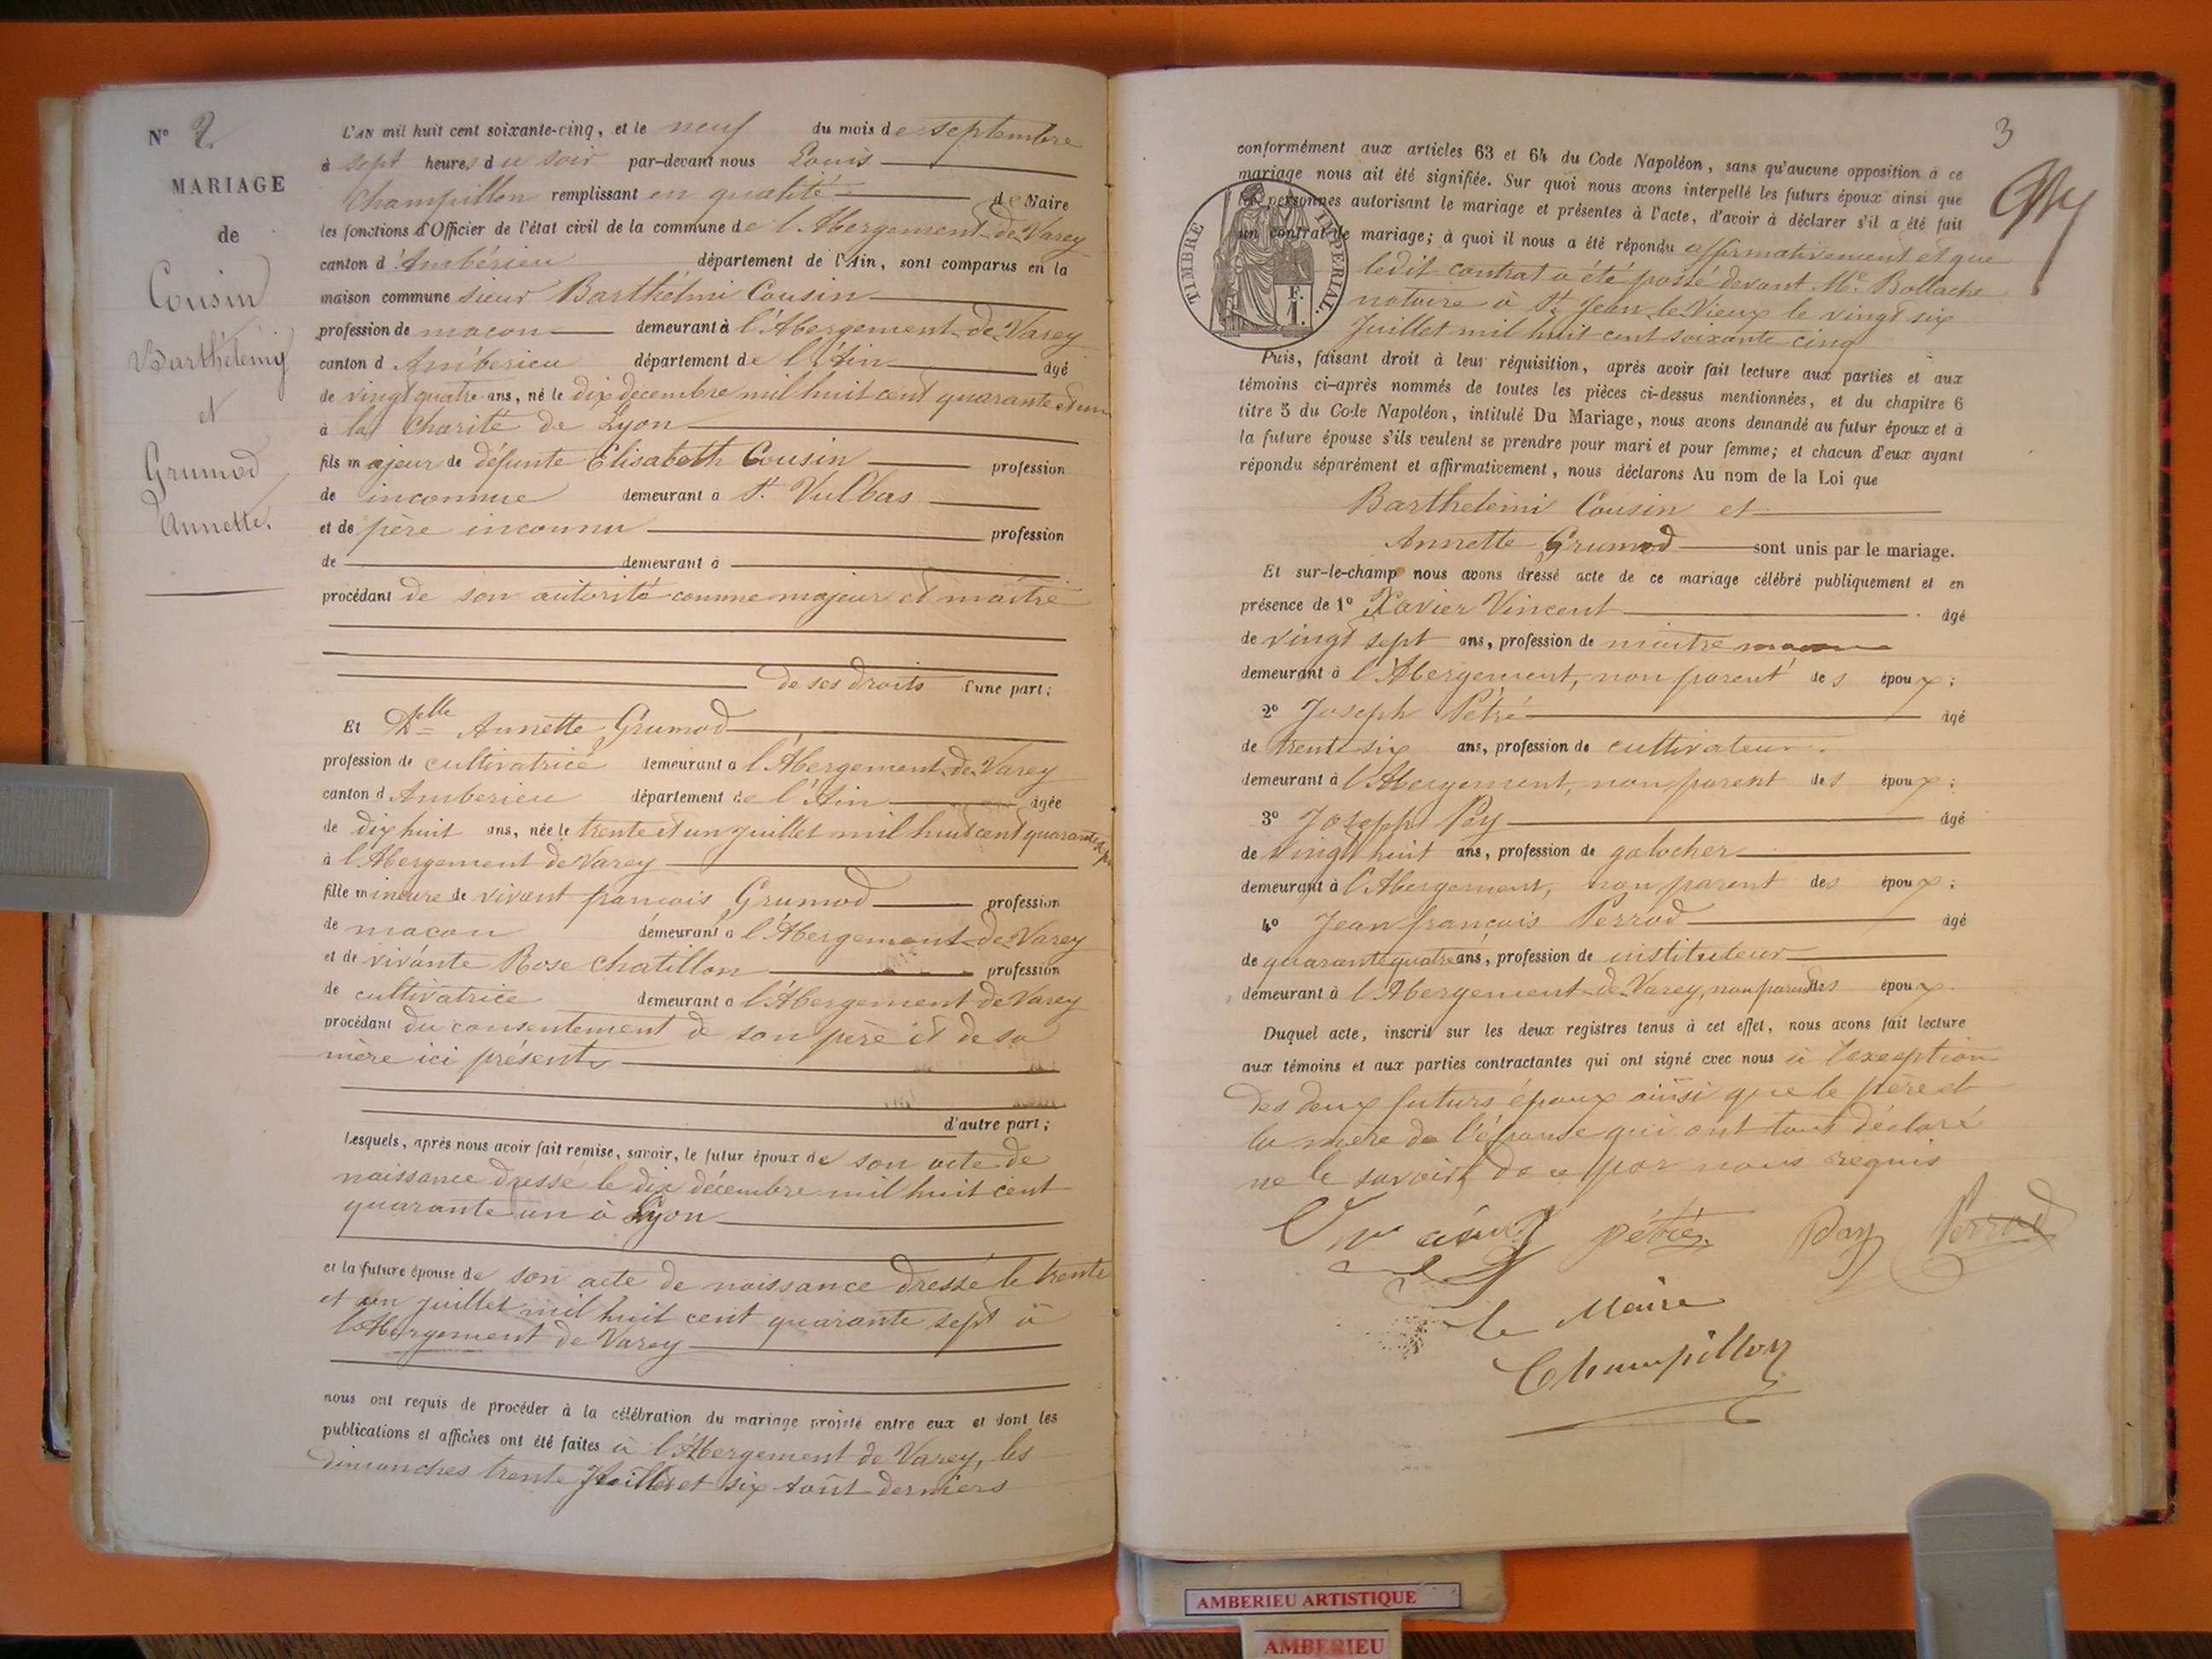 N° 2
MARIAGE
de
Cousin
Barthélemy
et
Grumod
Annette.
L'AN mil huit cent soixante-cinq, et le neuf du mois de septembre
à sept heures du soir par-devant nous Louis
Champillon remplissant en qualité de Maire
les fonctions d'Officier de l'état civil de la commune de l'Abergement-de-Varey
canton d'Ambérieu département de l'Ain, sont comparus en la
maison commune sieur Barthélmi Cousin
profession de maçon demeurant à l'Abergement-de-Varey
canton d'Ambérieu département de l'Ain âgé
de vingt quatre ans, né le dix décembre mil huit cent quarante et un
à la Charité de Lyon
fils majeur de défunte Elisabeth Cousin profession
de inconnue demeurant à St Vulbas
et de père inconnu profession
de demeurant à
procédant de son autorité comme majeur et maître
de ses droits d'une part;
Et Delle Annette Grumod
profession de cultivatrice demeurant à l'Abergement-de-Varey
canton d'Amberieu département de l'Ain âgée
de dix huit ans, née le trente et un juillet mil huit cent quarante sept
à l'Abergement de Varey
fille mineure de vivant françois Grumod profession
de maçon demeurant à l'Abergement-de-Varey
et de vivante Rose Chatillon profession
de cultivatrice demeurant à l'Abergement de Varey
procédant du consentement de son père et de sa
mère ici présents
d'autre part;
Lesquels, après nous avoir fait remise, savoir, le futur époux de son acte de
naissance dressé le dix décembre mil huit cent
quarante un à Lyon
et la future épouse de son acte de naissance dressé le trente
et un juillet mil huit cent quarante sept à
l'Abergement de Varey
nous ont requis de procéder à la célébration du mariage projeté entre eux et dont les
publications et affiches ont été faites à l'Abergement de Varey, les
dimanches trente Juillet et six Août derniers
3
conformément aux articles 63 et 64 du Code Napoléon, sans qu'aucune opposition à ce
mariage nous ait été signifiée. Sur quoi nous avons interpellé les futurs époux ainsi que
les personnes autorisant le mariage et présentes à l'acte, d'avoir à déclarer s'il a été fait
un contrat de mariage; à quoi il nous a été répondu affirmativement et que
TIMBRE IMPERIAL.
F.
1.
ledit contrat a été passé devant Me. Bollache
notaire à St Jean-le-Vieux le vingt six
Juillet mil huit cent soixante cinq
Puis, faisant droit à leur réquisition, après avoir fait lecture aux parties et aux
témoins ci-après nommés de toutes les pièces ci-dessus mentionnées, et du chapitre 6
titre 5 du Code Napoléon, intitulé Du Mariage, nous avons demandé au futur époux et à
la future épouse s'ils veulent se prendre pour mari et pour femme; et chacun d'eux ayant
répondu séparément et affirmativement, nous déclarons Au nom de la Loi que
Barthelemi Cousin et
Annette Grumod sont unis par le mariage.
Et sur-le-champ nous avons dressé acte de ce mariage célébré publiquement et en
présence de 1° Xavier Vincent âgé
de vingt sept ans, profession de maître maçon
demeurant à l'Abergement, non parent des époux;
2° Joseph Pétré âgé
de trente six ans, profession de cultivateur.
demeurant à l'Abergement, non parent des époux;
3° Joseph Pey âgé
de vingt huit ans, profession de galocher
demeurant à l'Abergement, non parent des époux;
4° Jean françois Perrod âgé
de quarante quatre ans, profession de instituteur
demeurant à l'Abergement-de-Varey, non parent des époux
Duquel acte, inscrit sur les deux registres tenus à cet effet, nous avons fait lecture
aux témoins et aux parties contractantes qui ont signé avec nous à l'exception
des deux futurs époux ainsi que le père et
la mère de l'épouse qui ont tous déclaré
ne le savoir de ce par nous requis
Vincent pétré Pey Perrod
le Maire
Champillon
AMBERIEU ARTISTIQUE
AMBERIEU